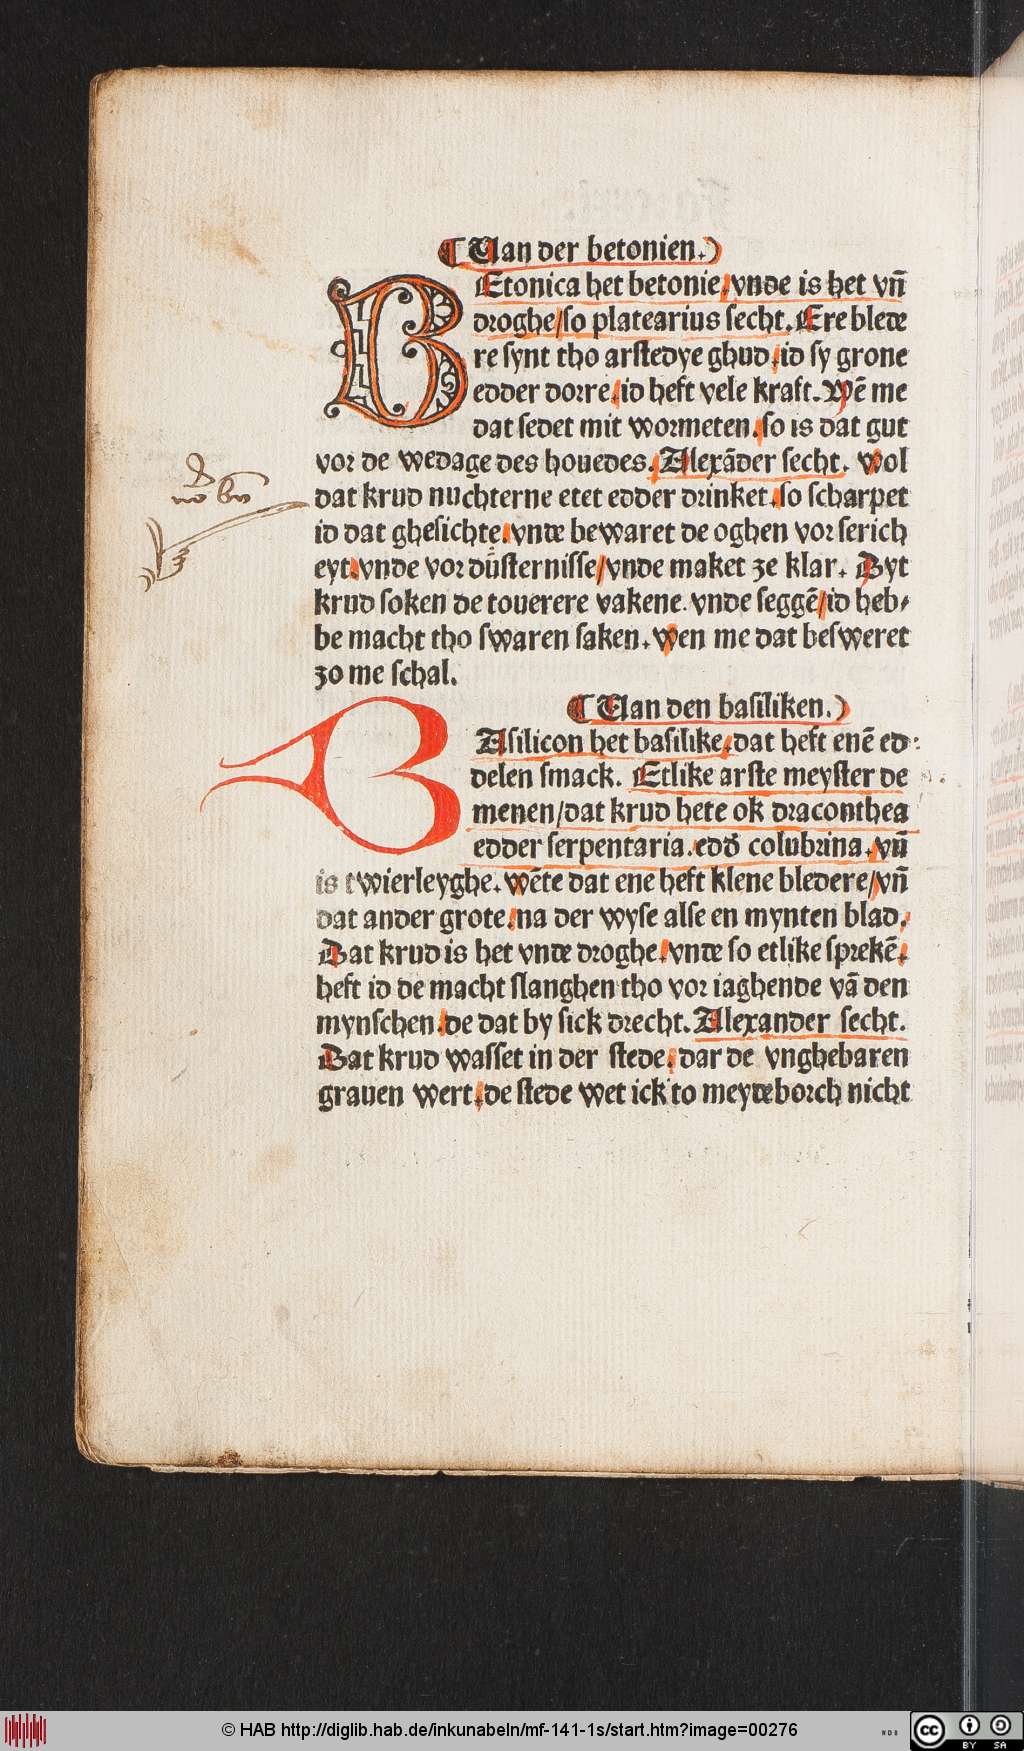 (Uan der betonien.)
BEtonica het betonie/vnde is het vn̄
droghe/so platearius secht. Ere blede
re synt tho arstedye ghud/id sy grone
edder dorre/id heft vele kraft. Wē me
dat sedet mit wormeten/so is dat gut
vor de wedage des houedes. Alexāder secht. Wol
dat krud nuchterne etet edder drinket/so scharpet
id dat ghesichte/vnde bewaret de oghen vor serich
eyt/vnde vor důsternisse/vnde maket ze klar. Dyt
krud soken de touerere vakene. vnde seggē/id heb⸗
be macht tho swaren saken. wen me dat besweret
zo me schal.
(Uan den basiliken.)
BAsilicon het basilike/dat heft enē ed⸗
delen smack. Etlike arste meyster de
menen/dat krud hete ok dracontbea
edder serpentaria. edd' colubrina. vn̄
is twierleyghe. wēte dat ene heft klene bledere/vn̄
dat ander grote/na der wyse alse en mynten blad.
Dat krud is het vnde droghe/vnde so etlike sprekē/
heft id de macht slanghen tho vor iaghende vā den
mynschen/de dat by sick drecht. Alexander secht.
Dat krud wasset in der stede/dar de vnghebaren
grauen wert/de stede wet ick to meydeborch nicht
© HAB http://diglib.hab.de/inkunabeln/mf-141-1s/start.htm?image=00276
WDB
cc BY SA